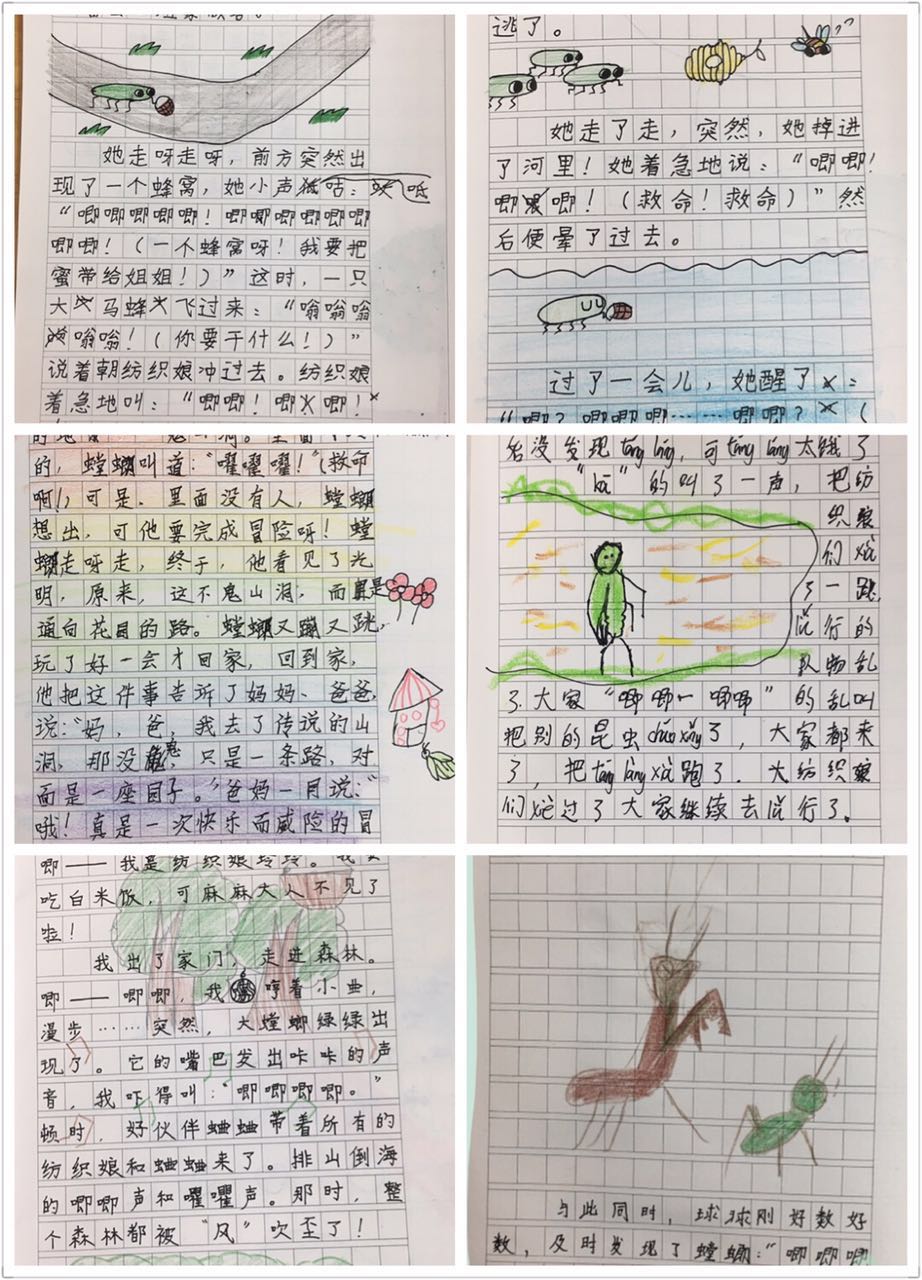 她走呀走呀，前方突然出
现了一个蜂窝，她小声咕：
“唧唧唧唧唧！唧唧唧唧唧唧唧
唧唧！（一个蜂窝呀！我要把
蜜带给姐姐！）”这时，一只
大马蜂飞过来：“嗡嗡嗡
嗡嗡！（你要干什么！）”
说着朝纺织娘冲过去。纺织娘
着急地叫：“唧唧！唧唧！
逃了。
她走了走，突然，她掉进
了河里！她着急地说：“唧唧！
唧唧！（救命！救命）”然
后便晕了过去。
过了一会儿，她醒了：
“唧？唧唧唧……唧唧？（
的，螳螂叫道：“嚁嚁嚁！”（救命
啊！），可是，里面没有人，螳螂
想出，可他要完成冒险呀！螳
螂走呀走，终于，他看见了光
明，原来，这不鬼山洞，而是
通向花园的路。螳螂又蹦又跳，
玩了好一会才回家，回到家，
他把这件事告诉了妈妈、爸爸，
说：“妈，爸，我去了传说的山
洞，那没，只是一条路，对
面是一座园子。”爸妈一同说：“
哦！真是一次快乐而威险的冒
没发现táng láng，可táng láng太饿了
“kā”的叫了一声，把纺
织娘
们xià
了一跳，
行的
队物乱
了.大家“唧唧一唧唧”的乱叫
把别的昆虫chǎo xǐng了，大家都来
了，把táng láng xià跑了．大纺织娘
们xiè过了大家继续去行了。
唧——我是纺织娘玲玲。
吃白米饭，可麻麻大人不见了
啦！
我出了家门，走进森林。
唧——唧唧，我哼着小曲，
漫步……突然，大螳螂绿绿出
现了。它的嘴巴发出咔咔的声
音，我吓得叫：“唧唧唧唧。”
顿时，好伙伴蛐蛐带着所有的
纺织娘和蛐蛐来了。排山倒海
的唧唧声和嚁嚁声。那时，整
个森林都被“风”吹歪了！
与此同时，球球刚好数好
数，及时发现了螳螂：“唧唧唧